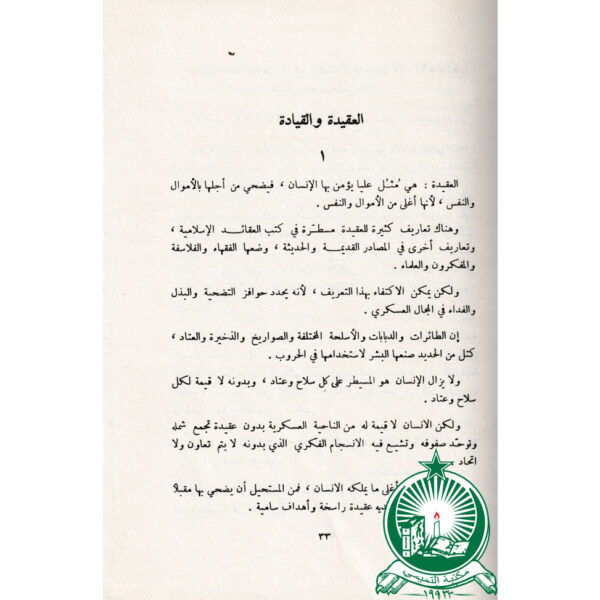 العقيدة والقيادة
١
العقيدة : هي مُثلُ عليا يؤمن بها الإنسان ، فيضحي من أجلها بالأموال
والنفس ، لأنها أغلى من الأموال والنفس .
وهناك تعاريف كثيرة للعقيدة مسطـّرة في كتب العقائد الإسلامية ،
وتعاريف أخرى في المصادر القديمة والحديثة ، وضعها الفقهاء والفلاسفة
والمفكرون والعلماء .
ولكن يمكن الاكتفاء بهذا التعريف ، لأنه يحدد حوافز التضحية والبذل
والفداء في المجال العسكري .
إن الطائرات والدبابات والأسلحة المختلفة والصواريخ والذخيرة والعتاد ،
كتل من الحديد صنعها البشر لاستخدامها في الحروب .
ولا يزال الإنسان هو المسيطر على كل سلاح وعتاد ، وبدونه لا قيمة لكل
سلاح وعتاد .
ولكن الانسان لا قيمة له من الناحية العسكرية بدون عقيدة تجمع شمله
وتوحّد صفوفه وتشيع فيه الانسجام الفكري الذي بدونه لا يتم تعاون ولا
اتحاد .
أغلى ما يملكه الانسان ، فمن المستحيل أن يضحي بها مقبلاً
عقيدة راسخة وأهداف سامية .
٣٣
مكتبة التميمي
١٩٩٣